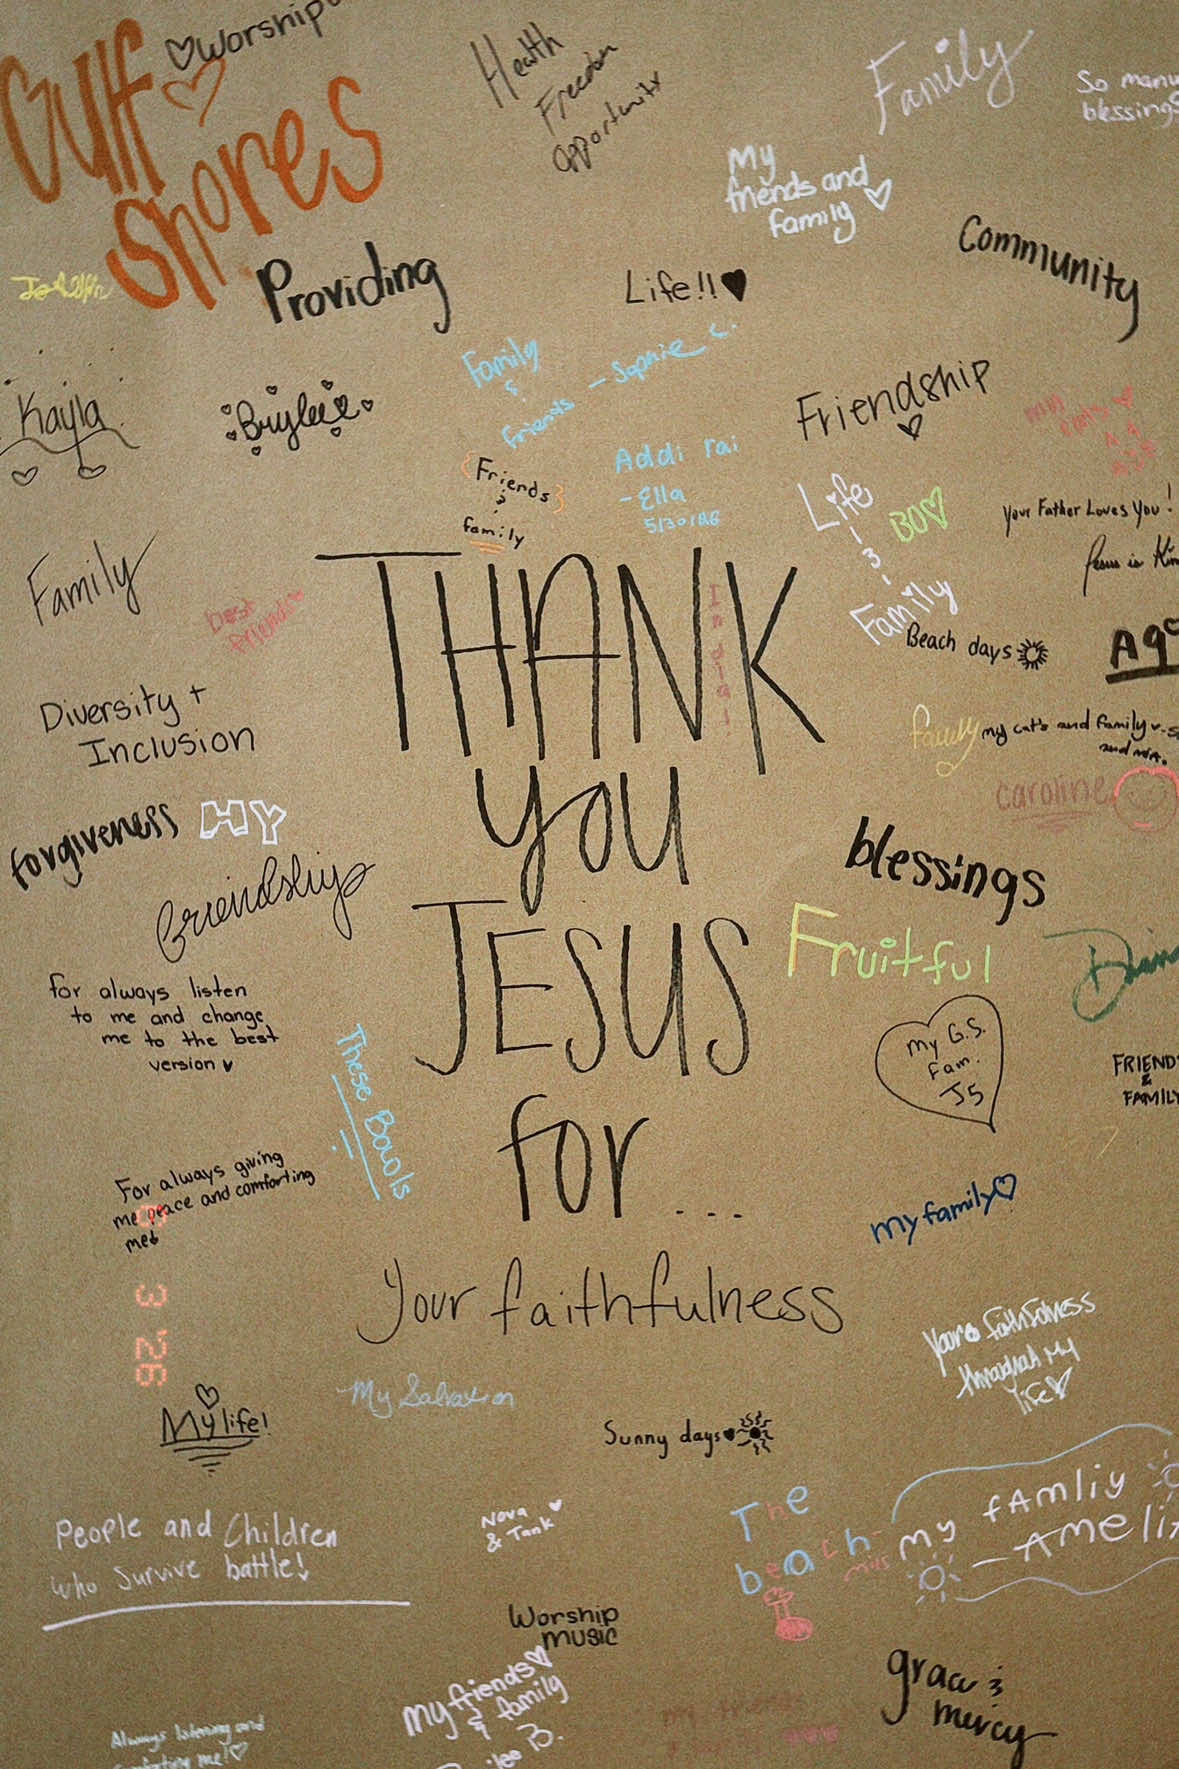 Gulf
Shores
Worship
Health
Freedom
Opportunity
Family
So many
blessings
My
friends and
family
Community
Providing
Life!!
Kayla
Brylee
Family
&
Friends
- Sophie C.
Friendship
Addi rai
- Ella
{Friends}
&
family
Life
&
Family
BO
Your Father Loves You!
Jesus is
Family
Best
friends
THANK
YOU
JESUS
for...
Your faithfulness
Beach days
Diversity +
Inclusion
family
my cat's and family
caroline
forgiveness
HY
blessings
Friendship
Fruitful
for always listen
to me and change
me to the best
version
These Bowls
My G.S.
Fam.
J5
FRIENDS
&
FAMILY
For always giving
me peace and comforting
me
my family
3 '26
Your faithfulness
through my
life
My Salvation
My life!
Sunny days
People and Children
who survive battle!
Nova
& Tank
The
beach
my fAmliy
- Ameli
Worship
music
My friends
& family
grace &
mercy
Always listening and
comforting me!